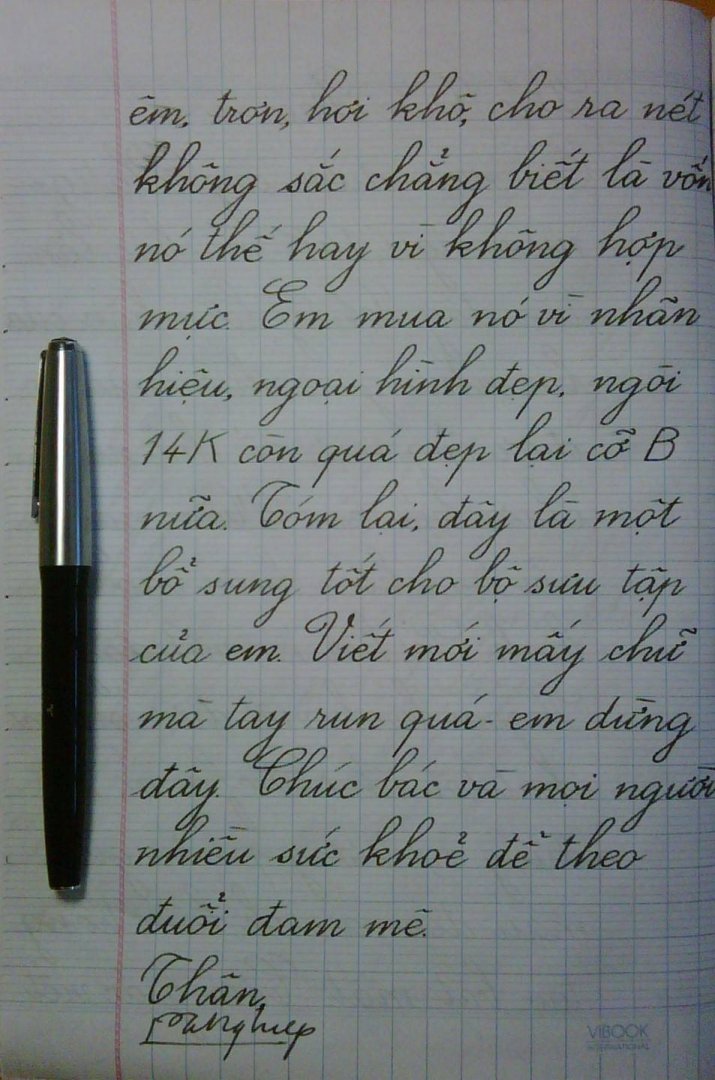 êm, trơn, hơi khô, cho ra nét
không sắc chẳng biết là vốn
nó thế hay vì không hợp
mực. Em mua nó vì nhãn
hiệu, ngoại hình đẹp, ngòi
14K còn quá đẹp lại cỡ B
nữa. Tóm lại, đây là một
bổ sung tốt cho bộ sưu tập
của em. Viết mới mấy chữ
mà tay run quá - em dừng
đây. Chúc bác và mọi người
nhiều sức khoẻ để theo
đuổi đam mê.
Thân,
VIBOOK
INTERNATIONAL